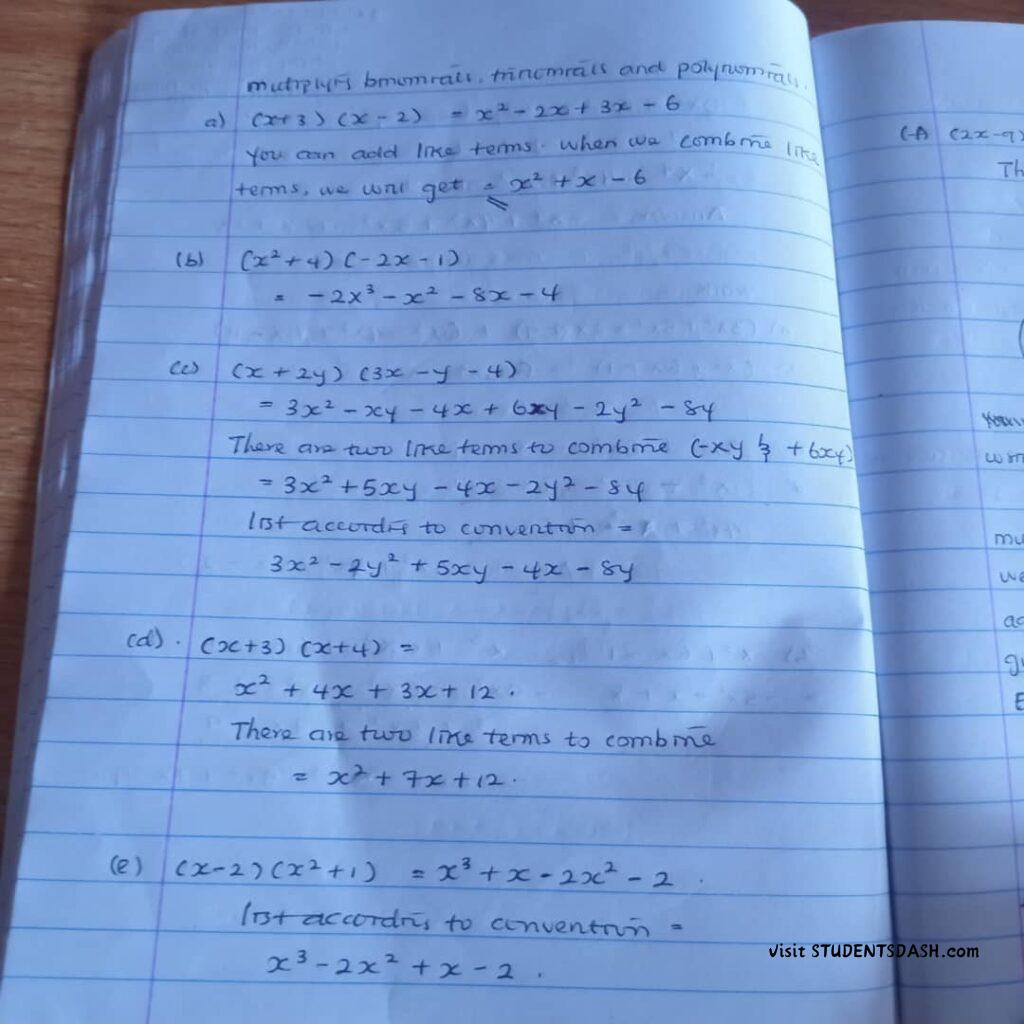 multiplying binomials, trinomials and polynomials.
a) (x+3) (x-2) = x² - 2x + 3x - 6
You can add like terms. When we combine like
terms, we will get = x² + x - 6
(b) (x² + 4) (-2x - 1)
= -2x³ - x² - 8x - 4
(c) (x + 2y) (3x - y - 4)
= 3x² - xy - 4x + 6xy - 2y² - 8y
There are two like terms to combine (-xy & + 6xy)
= 3x² + 5xy - 4x - 2y² - 8y
list according to convention =
3x² - 2y² + 5xy - 4x - 8y
(d). (x+3) (x+4) =
x² + 4x + 3x + 12.
There are two like terms to combine
= x² + 7x + 12.
(e) (x-2) (x² + 1) = x³ + x - 2x² - 2.
list according to convention =
x³ - 2x² + x - 2.
(2x-9)
Th
mu
we
Visit STUDENTSDASH.com